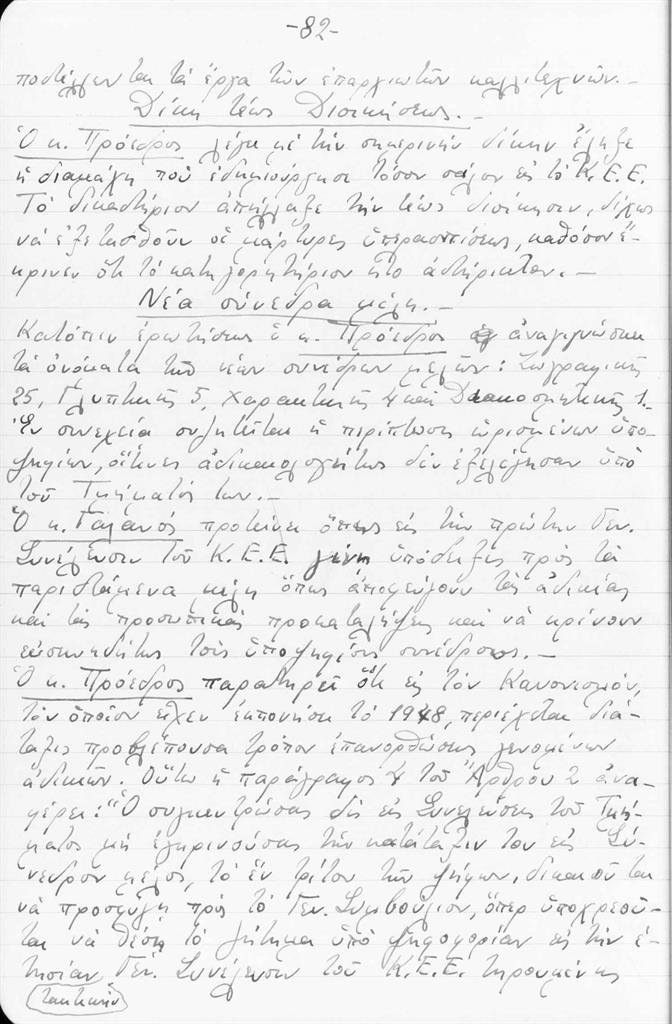 -82-
ποστέλλωνται τὰ ἔργα τῶν ἐπαρχιωτῶν καλλιτεχνῶν.-
Δίκη τέως Διοικήσεως.-
Ὁ κ. Πρόεδρος λέγει μὲ τὴν σημερινὴν δίκην ἔληξε
ἡ διαμάχη ποὺ ἐδημιούργησε τόσον σάλον εἰς τὸ Κ.Ε.Ε.
Τὸ δικαστήριον ἀπήλλαξε τὴν τέως διοίκησιν, δίχως
νὰ ἐξετασθοῦν οἱ μάρτυρες ὑπερασπίσεως, καθόσον ἔ-
κρινεν ὅτι τὸ κατηγορητήριον ἦτο ἀστήρικτον.-
Νέα σύνεδρα μέλη.-
Κατόπιν ἐρωτήσεως ὁ κ. Πρόεδρος ἀναγιγνώσκει
τὰ ὀνόματα τῶν νέων συνέδρων μελῶν: Ζωγραφικῆς
25, Γλυπτικῆς 5, Χαρακτικῆς 4 καὶ Διακοσμητικῆς 1.-
Ἐν συνεχείᾳ συζητεῖται ἡ περίπτωσις ὡρισμένων ὑπο-
ψηφίων, οἵτινες ἀδικαιολογήτως δὲν ἐξελέγησαν ὑπὸ
τοῦ Τμήματός των.-
Ὁ κ. Γαλανός προτείνει ὅπως εἰς τὴν πρώτην Γεν.
Συνέλευσιν τοῦ Κ.Ε.Ε. γίνῃ ὑπόδειξις πρὸς τὰ
παριστάμενα μέλη ὅπως ἀποφεύγουν τὰς ἀδικίας
καὶ τὰς προσωπικὰς προκαταλήψεις καὶ νὰ κρίνουν
εὐσυνειδήτως τοὺς ὑποψηφίους συνέδρους.-
Ὁ κ. Πρόεδρος παρατηρεῖ ὅτι εἰς τὸν Κανονισμόν,
τὸν ὁποῖον εἶχεν ἐκπονήσει τὸ 1948, περιέχεται διά-
ταξις προβλέπουσα τρόπον ἐπανορθώσεως γενομένων
ἀδικιῶν. Οὕτω ἡ παράγραφος 4 τοῦ Ἄρθρου 2 ἀνα-
φέρει: "Ὁ συγκεντρώσας δὶς εἰς Συνελεύσεις τοῦ Τμή-
ματος μὴ ἐγκρινούσας τὴν κατάταξίν του εἰς Σύ-
νεδρον μέλος, τὸ ἓν τρίτον τῶν ψήφων, δικαιοῦται
νὰ προσφύγῃ πρὸς τὸ Γεν. Συμβούλιον, ὅπερ ὑποχρεοῦ-
ται νὰ θέσῃ τὸ ζήτημα ὑπὸ ψηφοφορίαν εἰς τὴν ἐ-
τησίαν Γεν. Συνέλευσιν τοῦ Κ.Ε.Ε. τηρουμένης
τακτικὴν